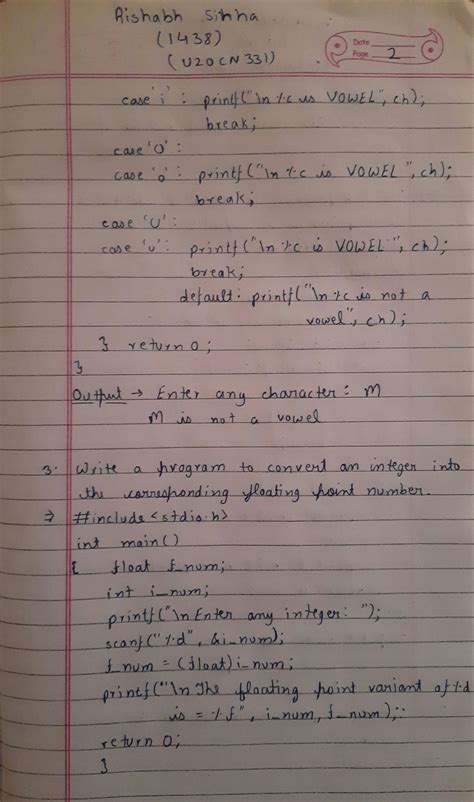 Rishabh Sinha
(1438)
(U20CN331)
Date
Page 2
case 'i' : printf("\n %c is VOWEL", ch);
break;
case 'O':
case 'o': printf("\n %c is VOWEL", ch);
break;
case 'U':
case 'u': printf("\n %c is VOWEL", ch);
break;
default: printf("\n %c is not a
vowel", ch);
} return 0;
}
Output → Enter any character: M
M is not a vowel
3. Write a program to convert an integer into
the corresponding floating point number.
⇒ #include <stdio.h>
int main()
{ float f_num;
int i_num;
printf("\n Enter any integer: ");
scanf("%d", &i_num);
f_num = (float)i_num;
printf("\n The floating point variant of %d
is = %f", i_num, f_num);
return 0;
}